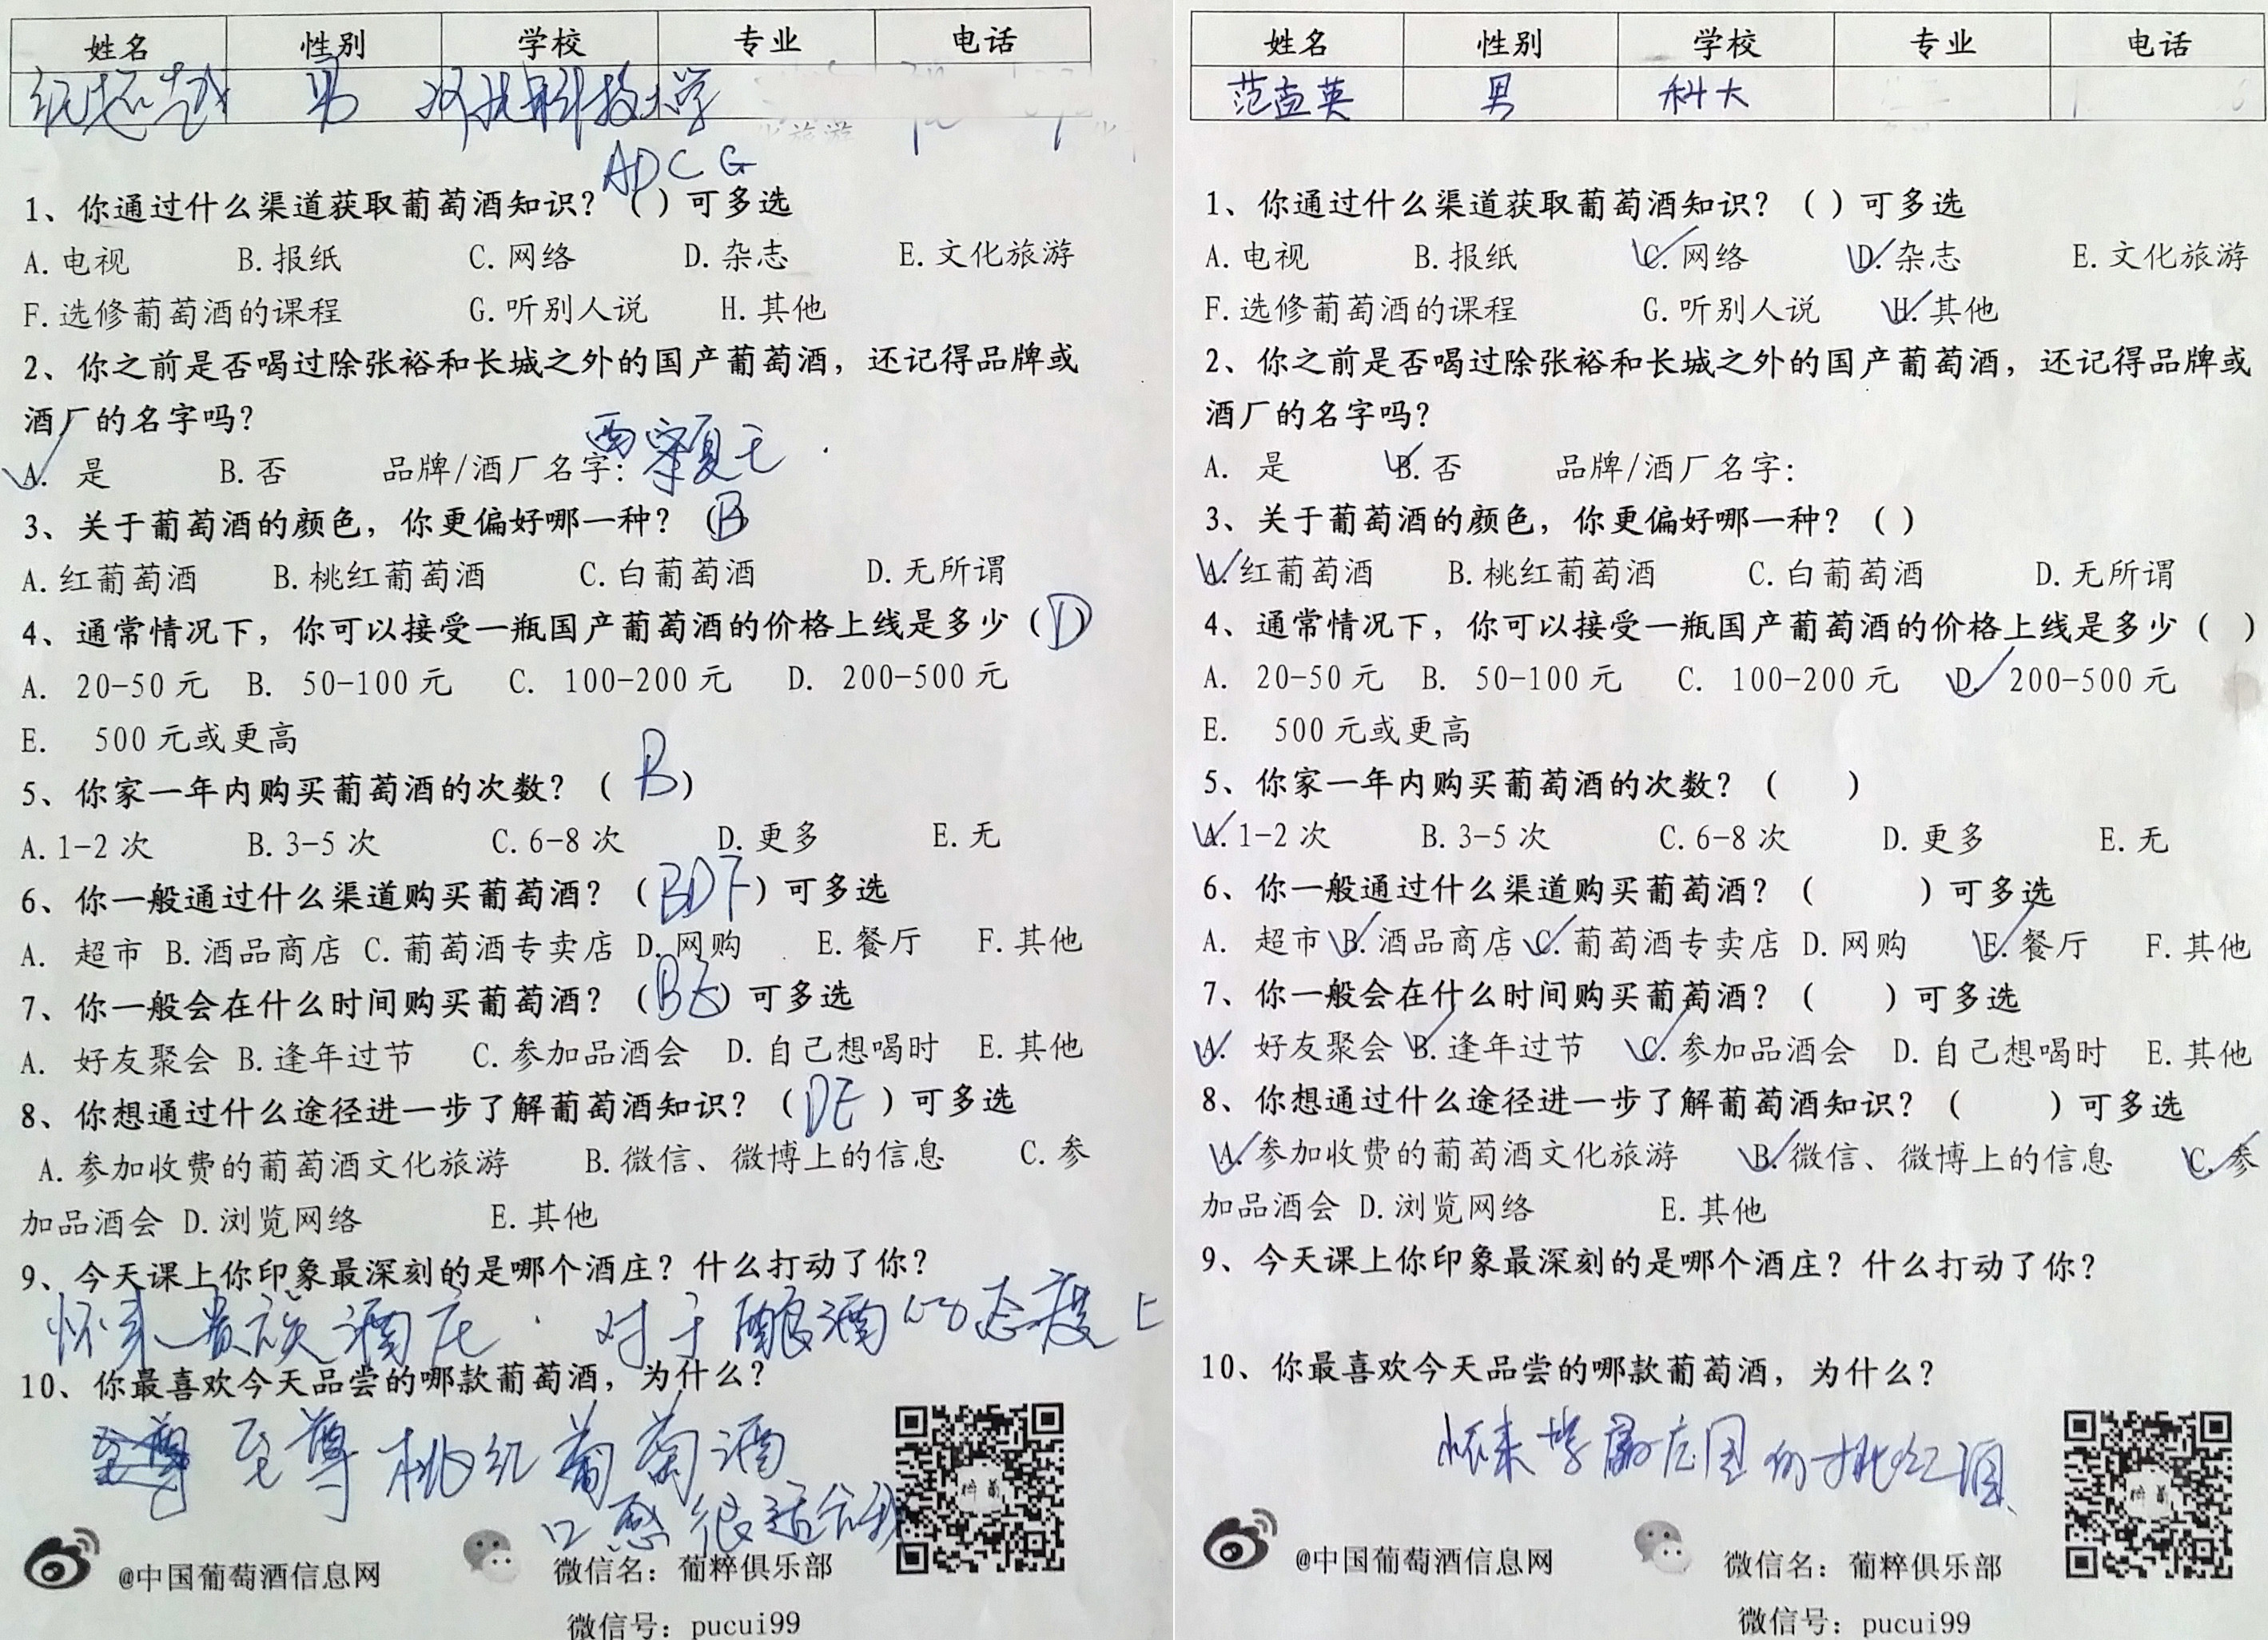 姓名 性别 学校 专业 电话
纪超越 男 河北科技大学
ADCG
1、你通过什么渠道获取葡萄酒知识？（ ）可多选
A.电视 B.报纸 C.网络 D.杂志 E.文化旅游
F.选修葡萄酒的课程 G.听别人说 H.其他
2、你之前是否喝过除张裕和长城之外的国产葡萄酒，还记得品牌或
酒厂的名字吗？
A. 是 B.否 品牌/酒厂名字：
3、关于葡萄酒的颜色，你更偏好哪一种？（B
A.红葡萄酒 B.桃红葡萄酒 C.白葡萄酒 D.无所谓
4、通常情况下，你可以接受一瓶国产葡萄酒的价格上线是多少（D）
A. 20-50元 B. 50-100元 C. 100-200元 D. 200-500元
E. 500元或更高
5、你家一年内购买葡萄酒的次数？（B）
A.1-2次 B.3-5次 C.6-8次 D.更多 E.无
6、你一般通过什么渠道购买葡萄酒？（BDF）可多选
A. 超市 B.酒品商店 C.葡萄酒专卖店 D.网购 E.餐厅 F.其他
7、你一般会在什么时间购买葡萄酒？（BE）可多选
A. 好友聚会 B.逢年过节 C.参加品酒会 D.自己想喝时 E.其他
8、你想通过什么途径进一步了解葡萄酒知识？（DE）可多选
A.参加收费的葡萄酒文化旅游 B.微信、微博上的信息 C.参
加品酒会 D.浏览网络 E.其他
9、今天课上你印象最深刻的是哪个酒庄？什么打动了你？
怀来贵族酒庄. 对于酿酒的态度上
10、你最喜欢今天品尝的哪款葡萄酒，为什么？
至尊桃红葡萄酒
口感很适合我
@中国葡萄酒信息网 微信名：葡粹俱乐部
微信号：pucui99
姓名 性别 学校 专业 电话
范孟英 男 科大
1、你通过什么渠道获取葡萄酒知识？（ ）可多选
A.电视 B.报纸 C.网络 D.杂志 E.文化旅游
F.选修葡萄酒的课程 G.听别人说 H.其他
2、你之前是否喝过除张裕和长城之外的国产葡萄酒，还记得品牌或
酒厂的名字吗？
A. 是 B.否 品牌/酒厂名字：
3、关于葡萄酒的颜色，你更偏好哪一种？（ ）
A.红葡萄酒 B.桃红葡萄酒 C.白葡萄酒 D.无所谓
4、通常情况下，你可以接受一瓶国产葡萄酒的价格上线是多少（ ）
A. 20-50元 B. 50-100元 C. 100-200元 D. 200-500元
E. 500元或更高
5、你家一年内购买葡萄酒的次数？（ ）
A.1-2次 B.3-5次 C.6-8次 D.更多 E.无
6、你一般通过什么渠道购买葡萄酒？（ ）可多选
A. 超市 B.酒品商店 C.葡萄酒专卖店 D.网购 E.餐厅 F.其他
7、你一般会在什么时间购买葡萄酒？（ ）可多选
A. 好友聚会 B.逢年过节 C.参加品酒会 D.自己想喝时 E.其他
8、你想通过什么途径进一步了解葡萄酒知识？（ ）可多选
A.参加收费的葡萄酒文化旅游 B.微信、微博上的信息 C.参
加品酒会 D.浏览网络 E.其他
9、今天课上你印象最深刻的是哪个酒庄？什么打动了你？
10、你最喜欢今天品尝的哪款葡萄酒，为什么？
怀来 庄园的桃红酒
@中国葡萄酒信息网 微信名：葡粹俱乐部
微信号：pucui99